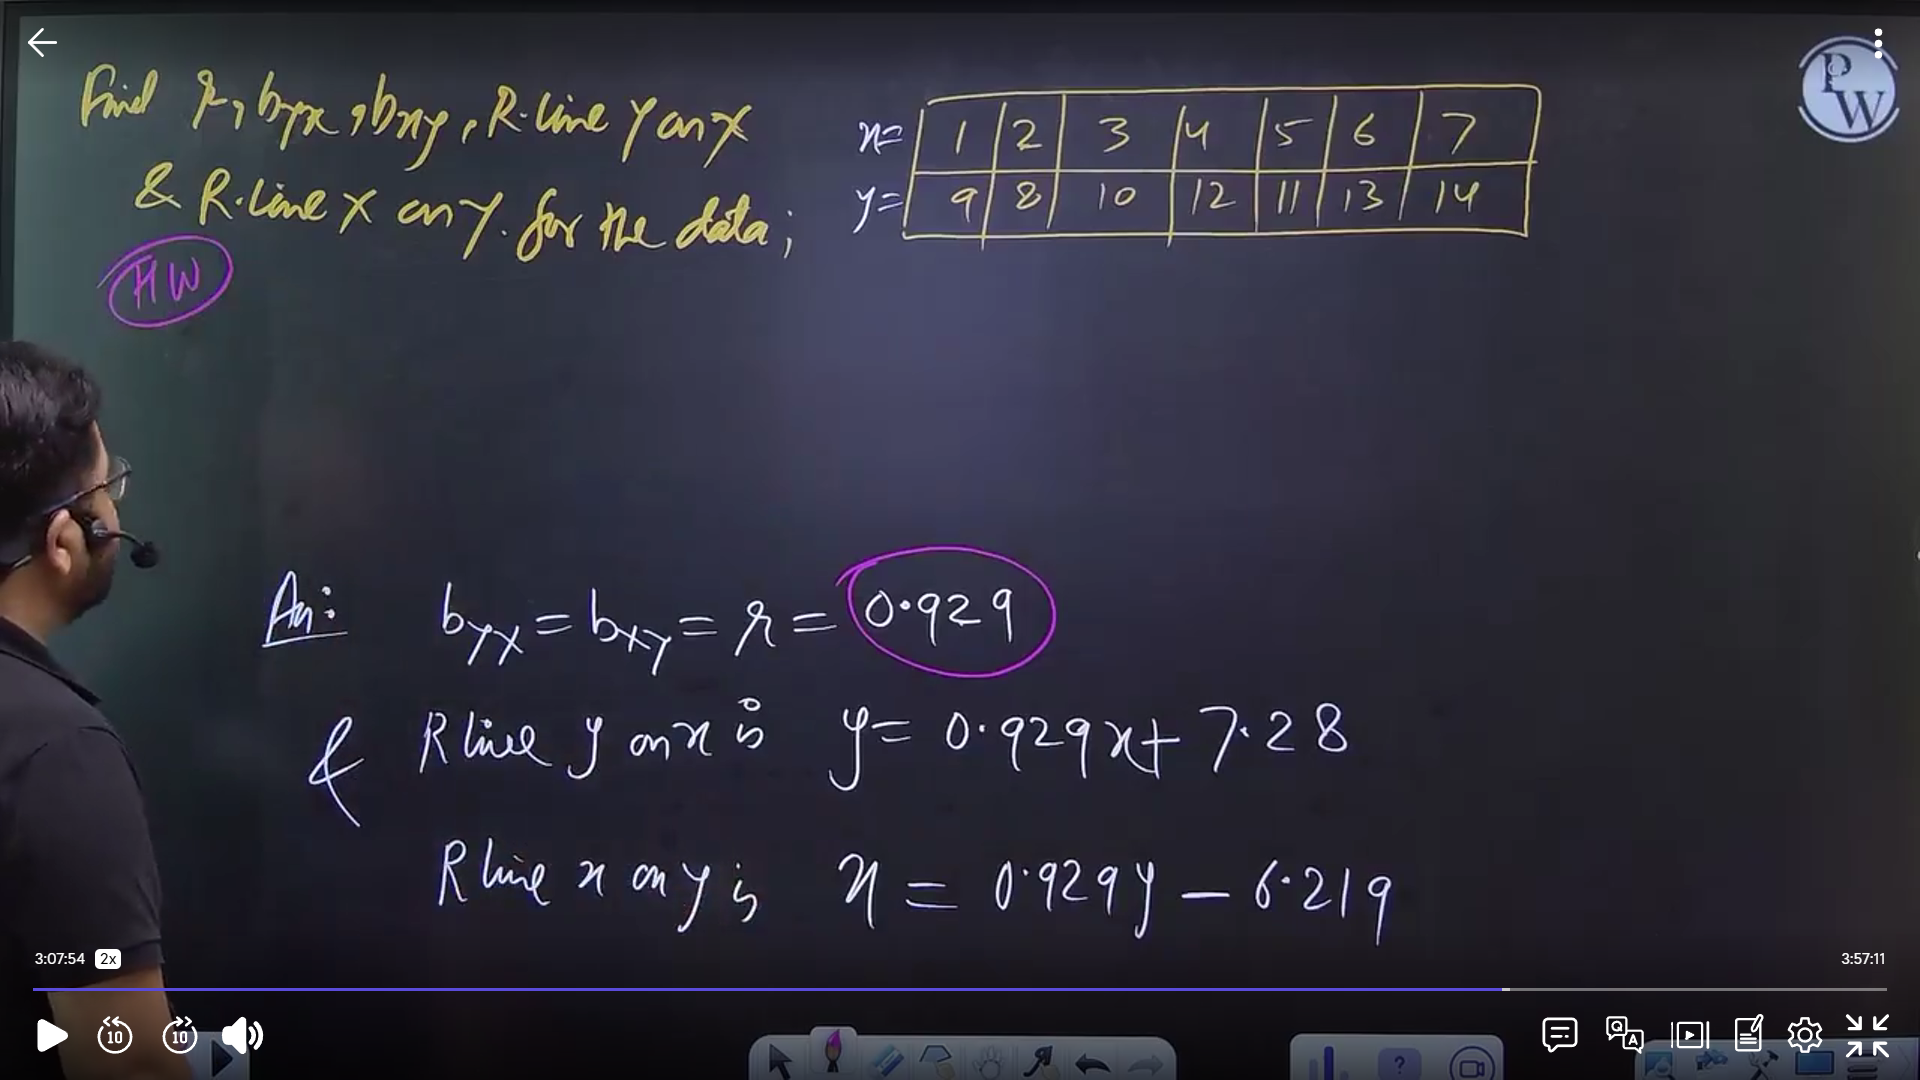 Find r, byx, bxy, R.line Y on X
& R.line X on Y. for the data;
x= 1 2 3 4 5 6 7
y= 9 8 10 12 11 13 14
HW
PW
An: byx = bxy = r = 0.929
& R line y on x is y = 0.929x + 7.28
R line x on y is x = 0.929y – 6.219
3:07:54 2x 3:57:11
10 10